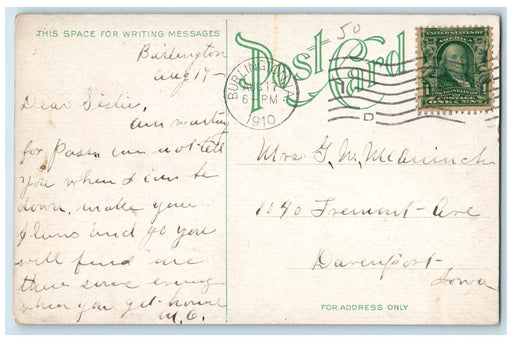 THIS SPACE FOR WRITING MESSAGES
Burlington
Aug 17-
Dear Sister,
am waiting
for Pass. can not tell
you when I can be
down, make your
plans and go you
will find me
there some evening
when you get home
M.C.
Post Card
50
BURLINGTON, IA.
AUG 17
6 PM
1910
D
UNITED STATES OF
AMERICA
FRANKLIN
1 ONE CENT 1
Mrs G. M. McAninch
1040 Fremont-Ave
Davenport-
Iowa
FOR ADDRESS ONLY